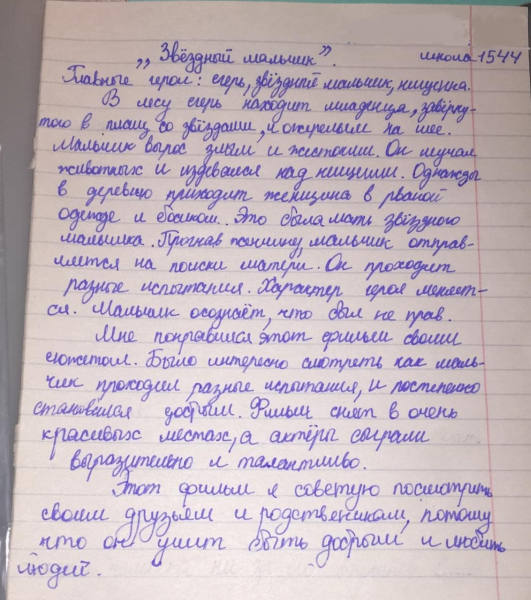 „Звёздный мальчик”. школа 1544
Главные герои: егерь, звёздный мальчик, нищенка.
В лесу егерь находит младенца, завёрну-
того в плащ со звёздами, и ожерельем на шее.
Мальчик вырос злым и жестоким. Он мучал
животных и издевался над нищими. Однажды
в деревню приходит женщина в рваной
одежде и босиком. Это была мать звёздного
мальчика. Прогнав женщину, мальчик отправ-
ляется на поиски матери. Он проходит
разные испытания. Характер героя меняет-
ся. Мальчик осознаёт, что был не прав.
Мне понравился этот фильм своим
сюжетом. Было интересно смотреть как маль-
чик проходил разные испытания, и постепенно
становился добрым. Фильм снят в очень
красивых местах, а актёры сыграли
выразительно и талантливо.
Этот фильм я советую посмотреть
своим друзьям и родственникам, потому
что он учит быть добрым и любить
людей.